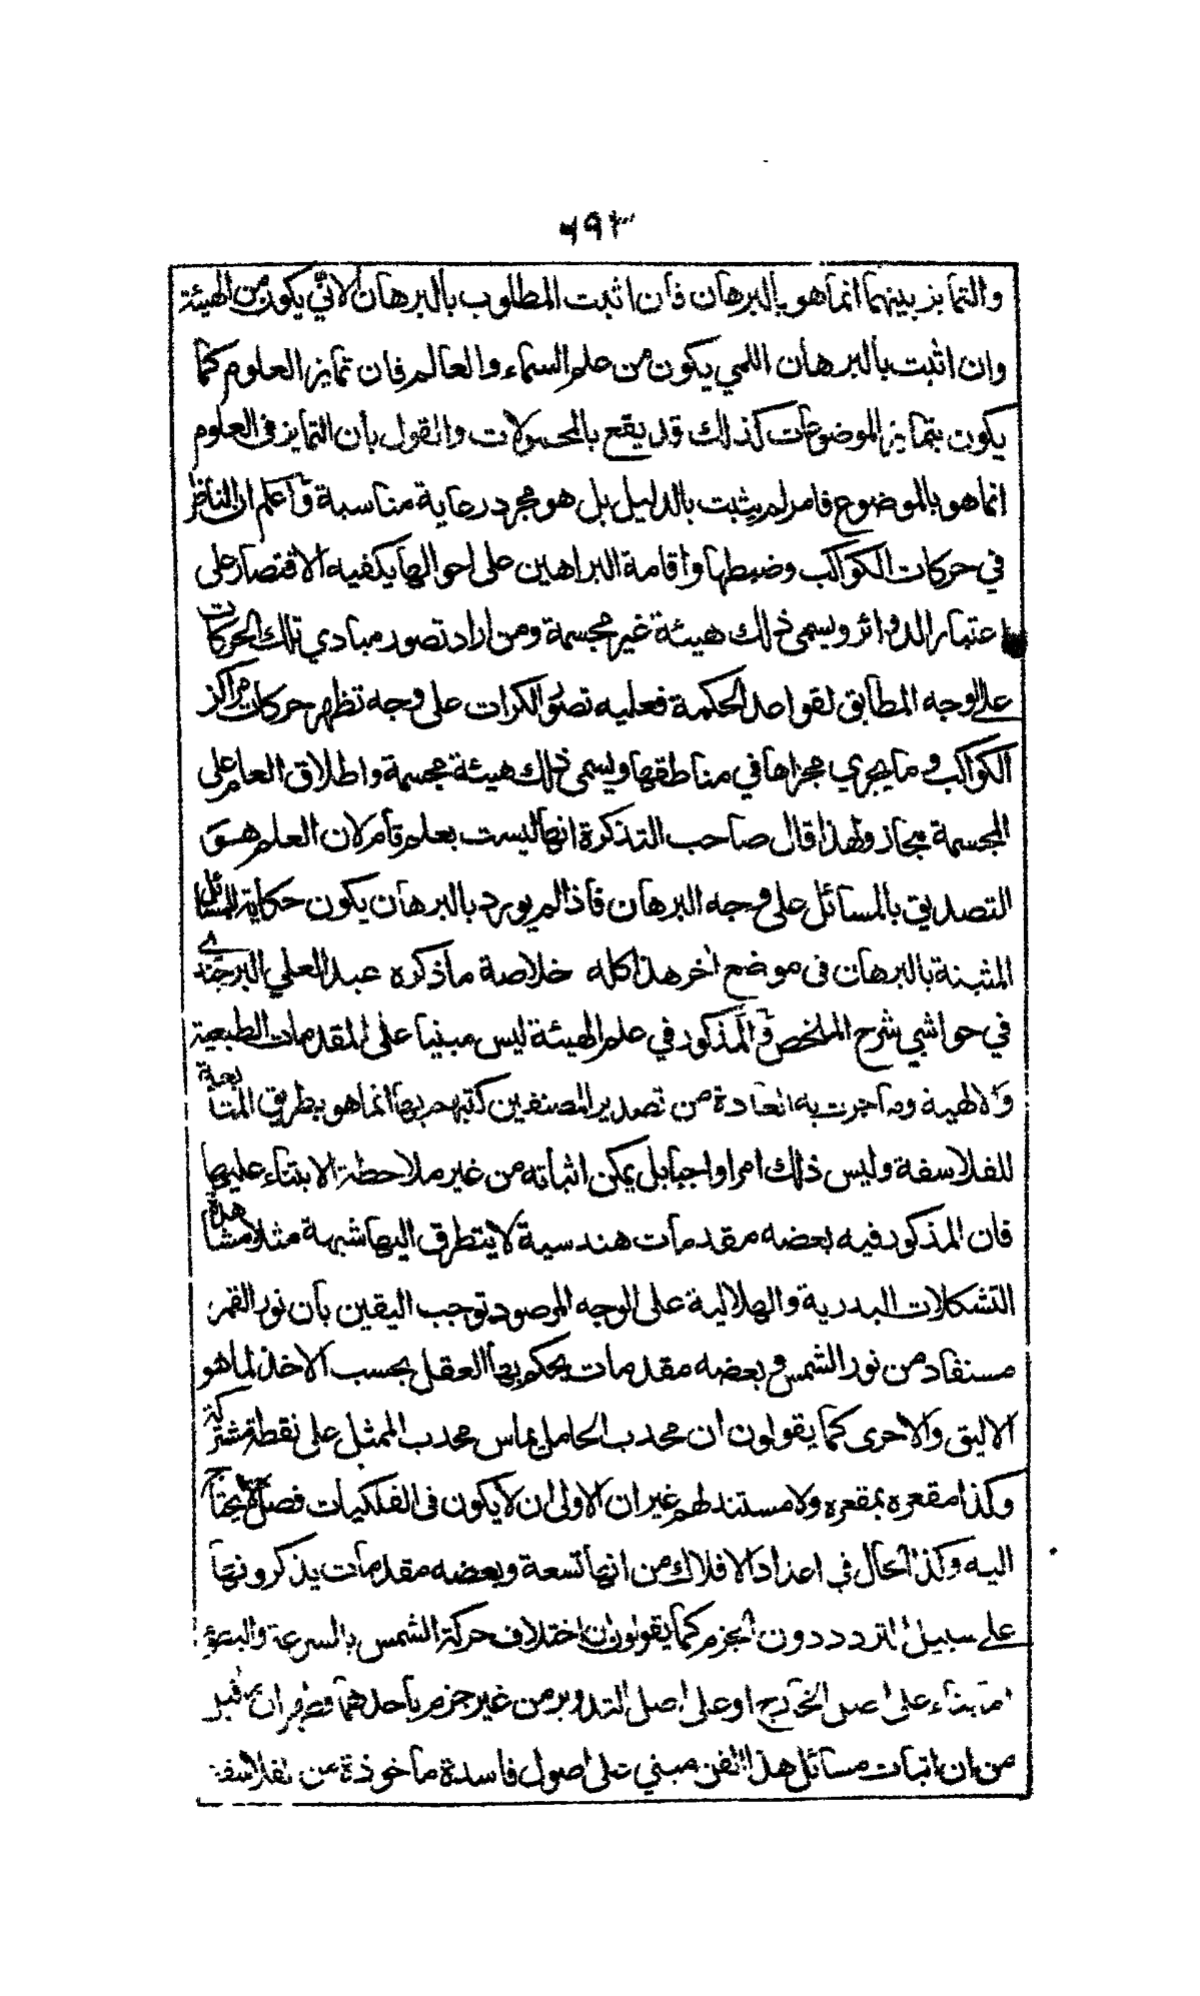 ٦٩٣
والتمايز بينهما انما هو بالبرهان فان اثبت المطلوب بالبرهان الاني يكون من الهيئة
وان اثبت بالبرهان اللمي يكون من علم السماء والعالم فان تمايز العلوم كما
يكون بتمايز الموضوعات كذلك قد يقع بالمحمولات والقول بأن التمايز في العلوم
انما هو بالموضوع فامر لم يثبت بالدليل بل هو مجرد رعاية مناسبة واعلم ان الناظر
في حركات الكواكب وضبطها واقامة البراهين على احوالها يكفيه الاقتصار على
اعتبار الدوائر ويسمى ذلك هيئة غير مجسمة ومن اراد تصور مبادي تلك الحركات
على الوجه المطابق لقواعد الحكمة فعليه تصور الكرات على وجه تظهر حركات مراكز
الكواكب وما يجري مجراها في مناطقها ويسمى ذلك هيئة مجسمة واطلاق العلم على
المجسمة مجاز ولهذا قال صاحب التذكرة انها ليست بعلم تام لان العلم هو
التصديق بالمسائل على وجه البرهان فاذا لم يورد بالبرهان يكون حكاية المسائل
المثبتة بالبرهان في موضع اخر هذا كله خلاصة ما ذكره عبد العلي البرجندي
في حواشي شرح الملخص والمذكور في علم الهيئة ليس مبنيا على المقدمات الطبيعية
والالهية وما جرت به العادة من تصدير المصنفين كتبهم بها انما هو بطريق المتابعة
للفلاسفة وليس ذلك امرا واجبا بل يمكن اثباته من غير ملاحظة الابتناء عليها
فان المذكور فيه بعضه مقدمات هندسية لا يتطرق اليها شبهة مثلا مشاهدة
التشكلات البدرية والهلالية على الوجه المرصود توجب اليقين بأن نور القمر
مستفاد من نور الشمس وبعضه مقدمات يحكم بها العقل بحسب الاخذ لما هو
الاليق والاحرى كما يقولون ان محدب الحامل يماس محدب الممثل على نقطة مشتركة
وكذا مقعره بمقعره ولا مستند لهم غير ان الاولى ان لا يكون في الفلكيات فصل لا يحتاج
اليه وكذا الحال في اعداد الافلاك من انها تسعة وبعضه مقدمات يذكرونها
على سبيل التردد دون الجزم كما يقولون ان اختلاف حركة الشمس بالسرعة والبطؤ
اما بناء على اصل الخارج او على اصل التدوير من غير جزم بأحدهما فظهر ان ما قيل
من ان اثبات مسائل هذا الفن مبني على اصول فاسدة مأخوذة من الفلاسفة